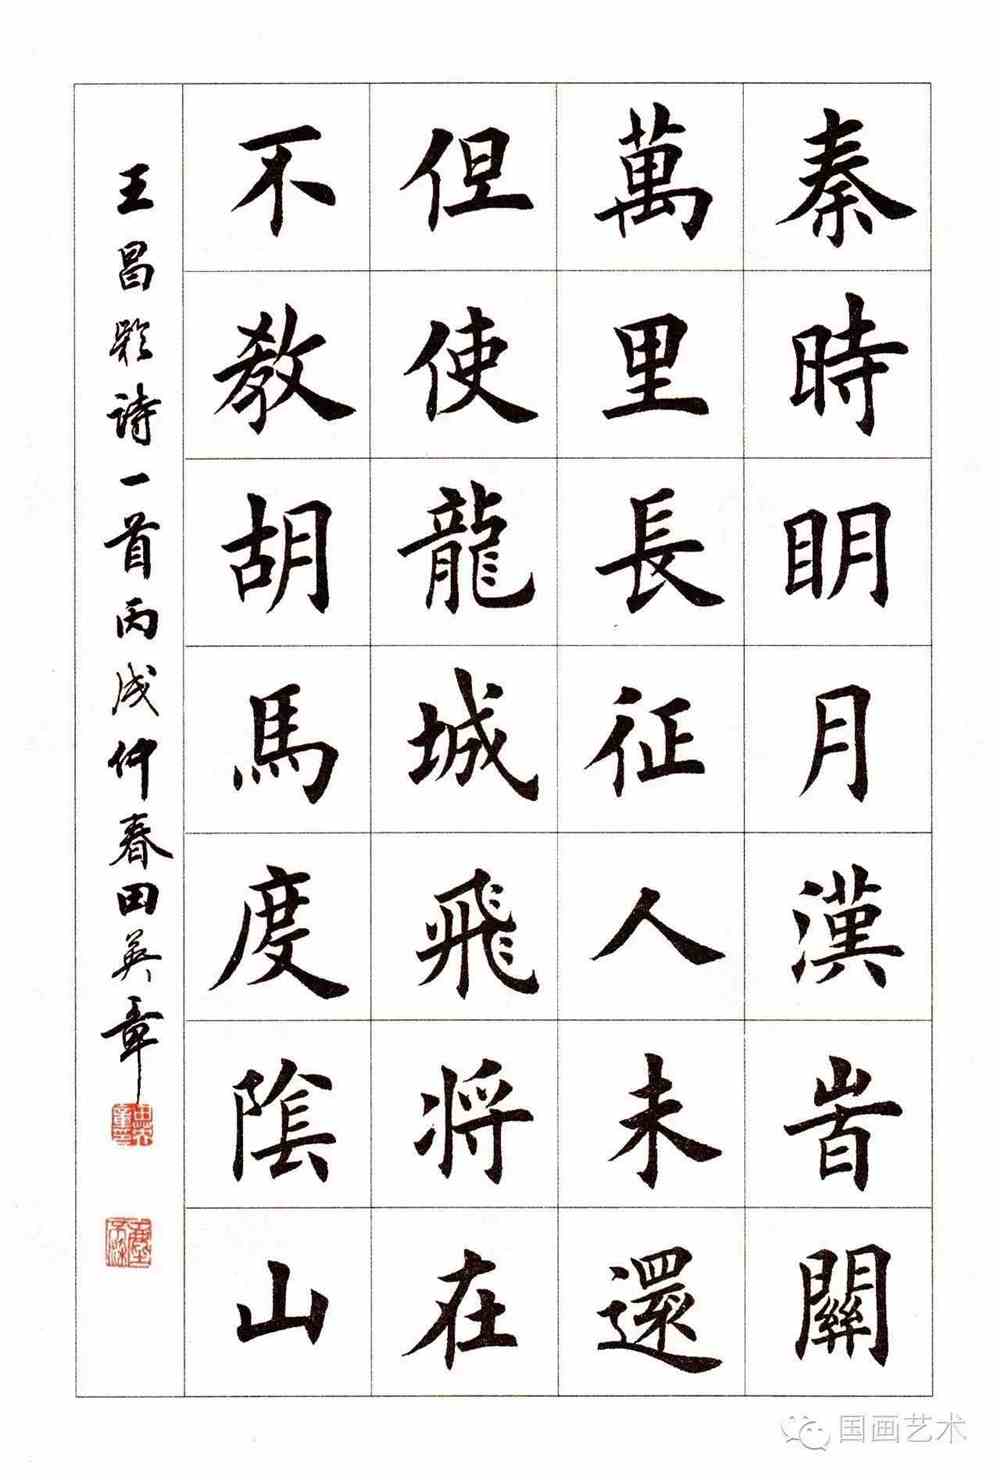 秦時眀月漢旹關
萬里長征人未還
但使龍城飛将在
不教胡馬度陰山
王昌齡詩一首丙戌仲春田英章
国画艺术